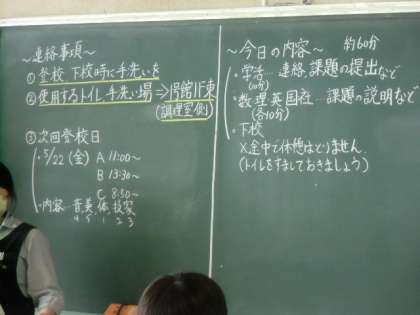 ～連絡事項～
① 登校、下校時に手洗いを
② 使用するトイレ、手洗い場 ⇒ 1号館1F東
(調理室側)
③ 次回登校日
・5/22 (金) A 11:00～
B 13:30～
C 8:50～
・内容… 音, 美, 体, 技家
4 5 1 2 3
～今日の内容～ 約60分
・学活… 連絡、課題の提出など
(10分)
・数理英国社… 課題の説明など
(各10分)
・下校
×途中で休憩はとりません
(トイレをすましておきましょう)